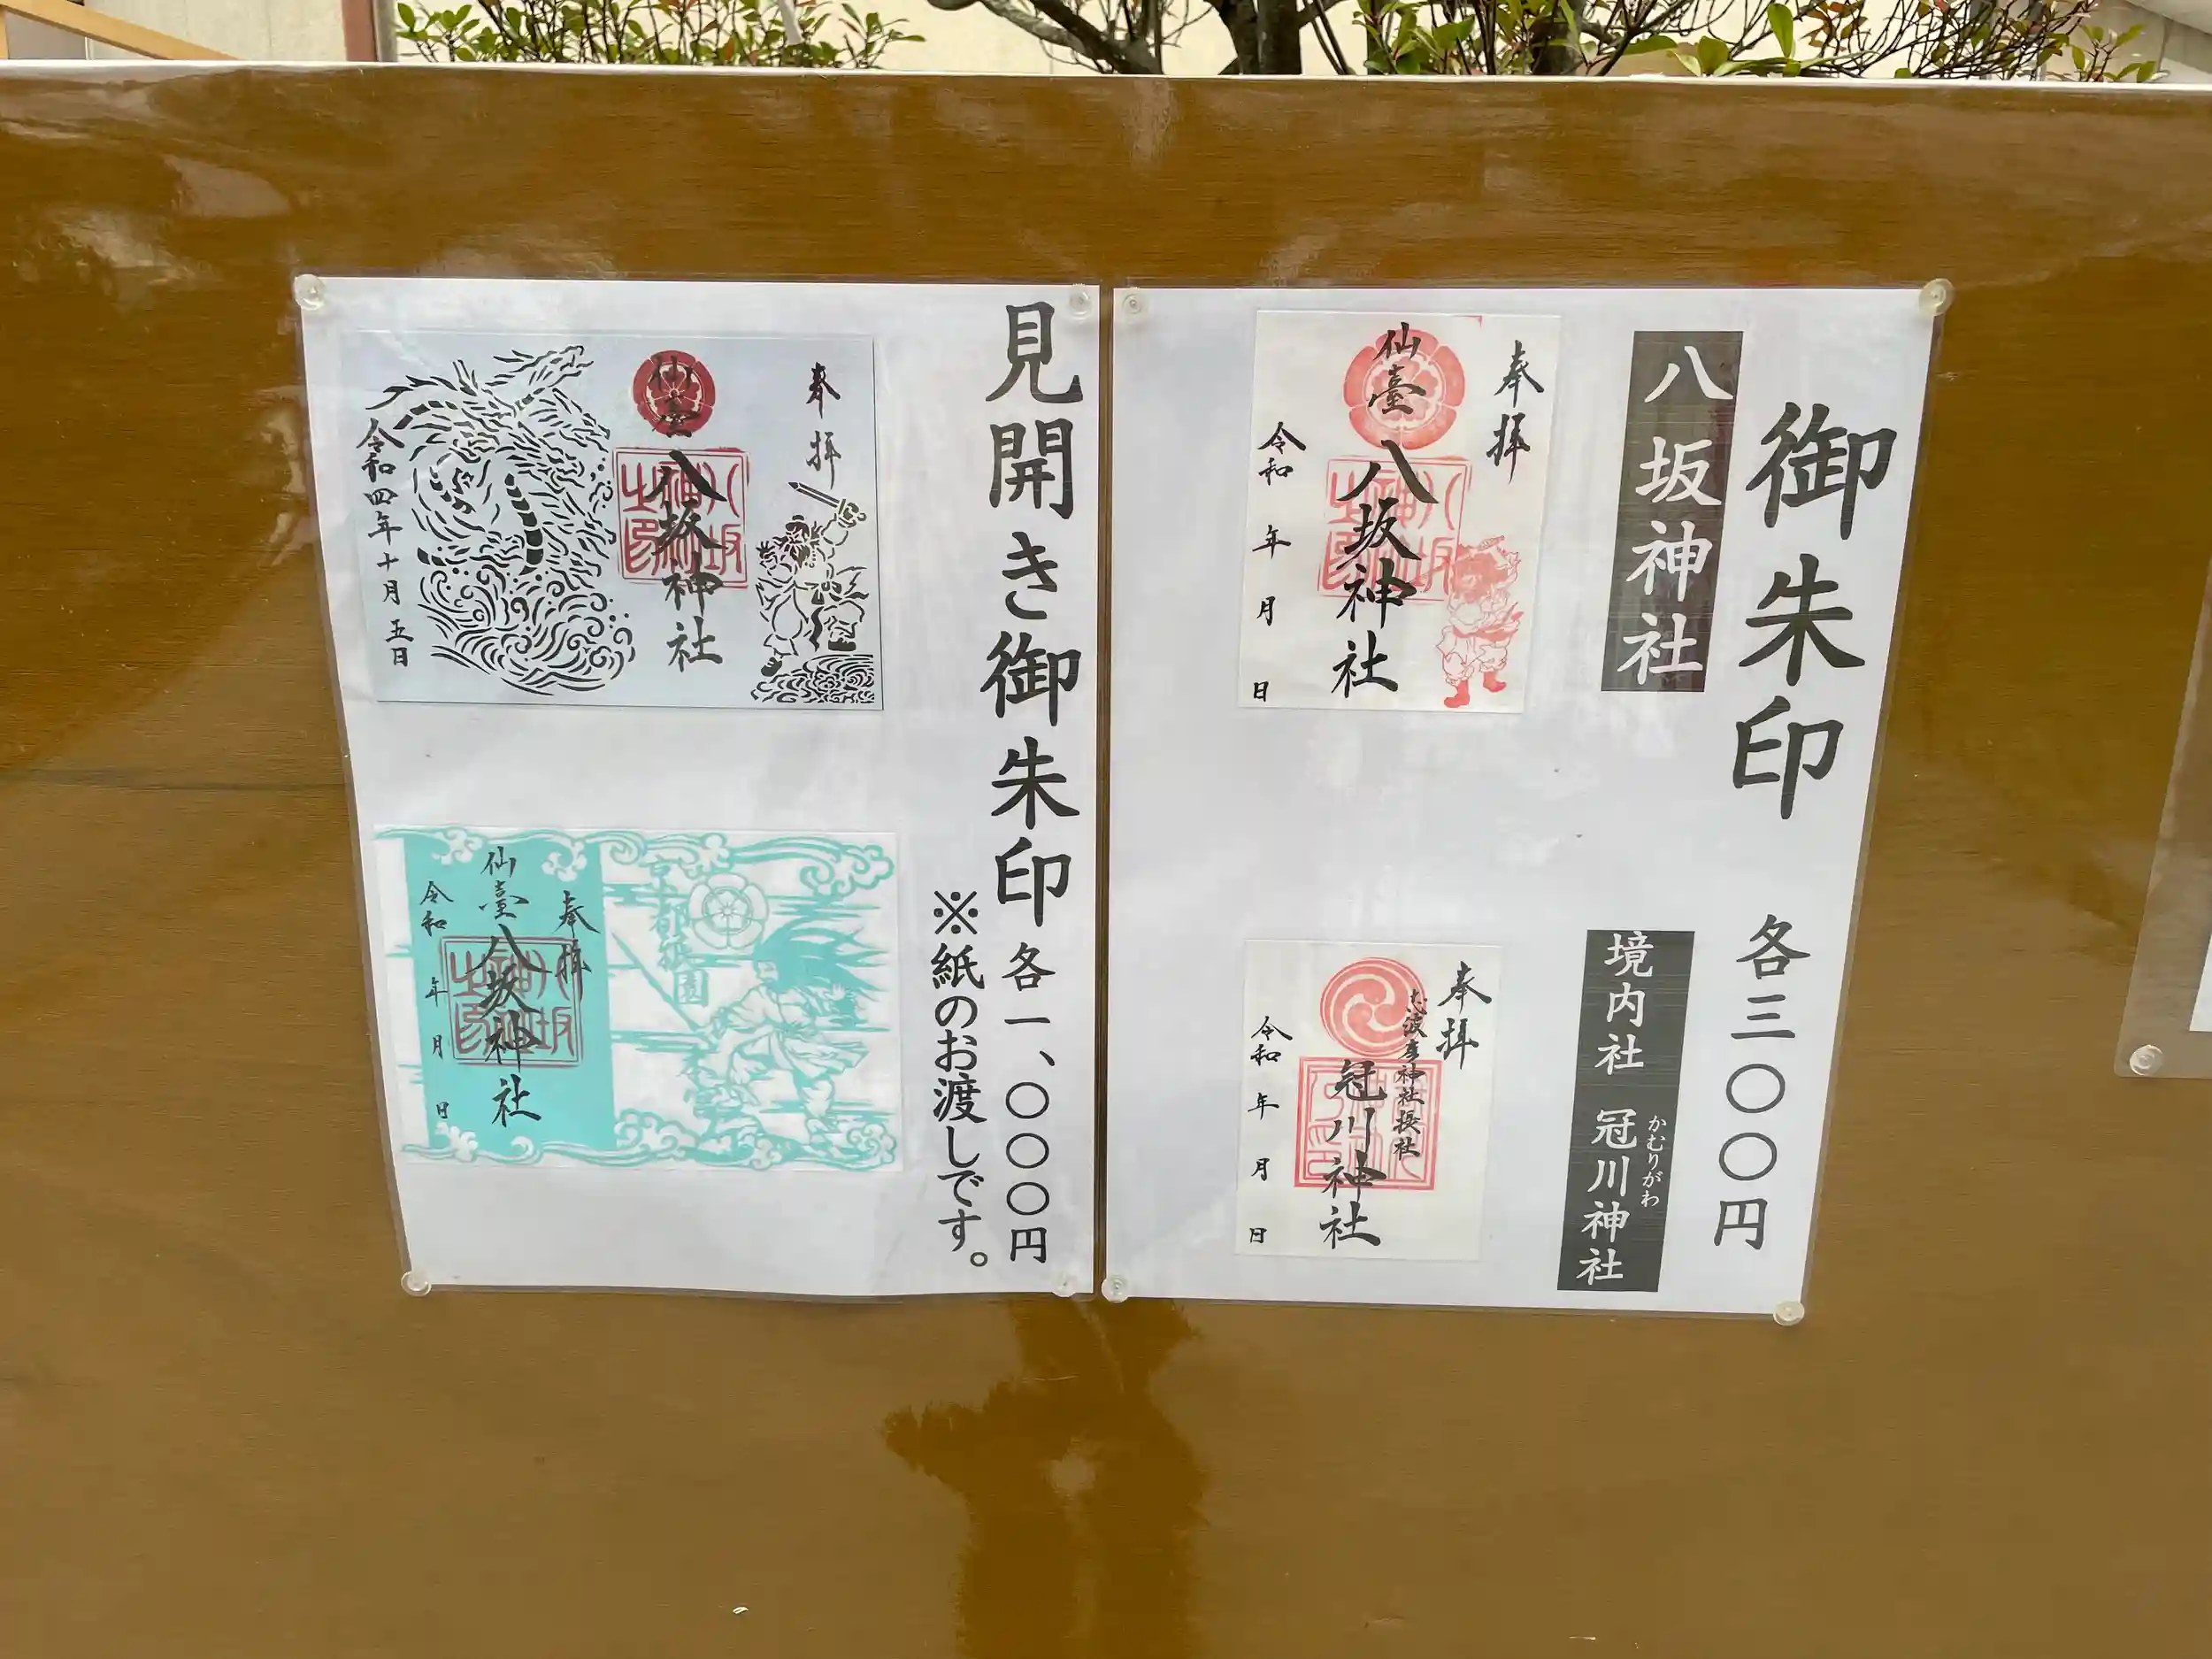 御朱印 各三〇〇円
八坂神社
奉拝
仙臺
八坂神社
令和 年 月 日
境内社 冠川神社
かむりがわ
奉拝
志波彦神社摂社
冠川神社
令和 年 月 日
見開き御朱印 各一、〇〇〇円
※紙のお渡しです。
奉拝
仙臺
八坂神社
令和四年十月五日
奉拝
仙臺
八坂神社
令和 年 月 日